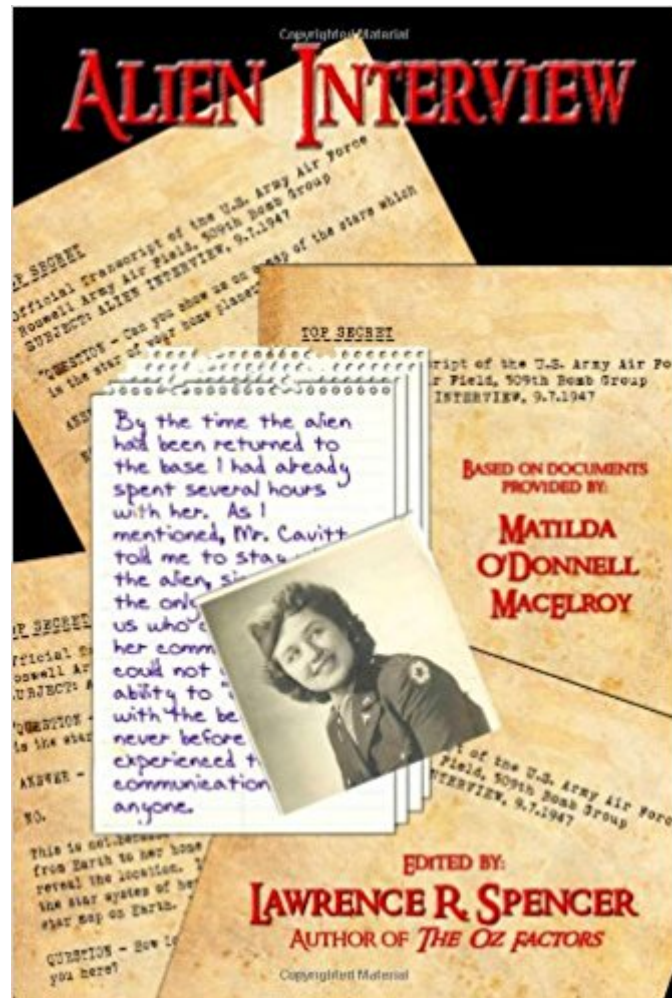 Copyrighted Material
ALIEN INTERVIEW
TOP SECRET
Official Transcript of the U.S. Army Air Force
Roswell Army Air Field, 509th Bomb Group
SUBJECT: ALIEN INTERVIEW, 9.7.1947
"QUESTION - Can you show us on a map of the stars which
is the star of your home planet
TOP SECRET
cript of the U.S. Army Air Fo
r Field, 509th Bomb Group
INTERVIEW, 9.7.1947
By the time the alien
had been returned to
the base I had already
spent several hours
with her. As I
mentioned, Mr. Cavitt
told me to stay
the alien, si
the only
us who
her comm
could not
ability to
with the be
never before
experienced t
communication
anyone.
BASED ON DOCUMENTS
PROVIDED BY:
MATILDA
O'DONNELL
MACELROY
OP SECRET
fficial
oswell Ar
UBJECT: A
"QUESTION -
is the star
ANSWER -
NO.
This is not
from Earth to her home
reveal the location.
the star system of he
star map on Earth.
QUESTION - How
you here?
t of the U.S. Army Air Force
Field, 509th Bomb Group
NTERVIEW, 9.7.1947
EDITED BY:
LAWRENCE R. SPENCER
AUTHOR OF THE OZ FACTORS
Copyrighted Material